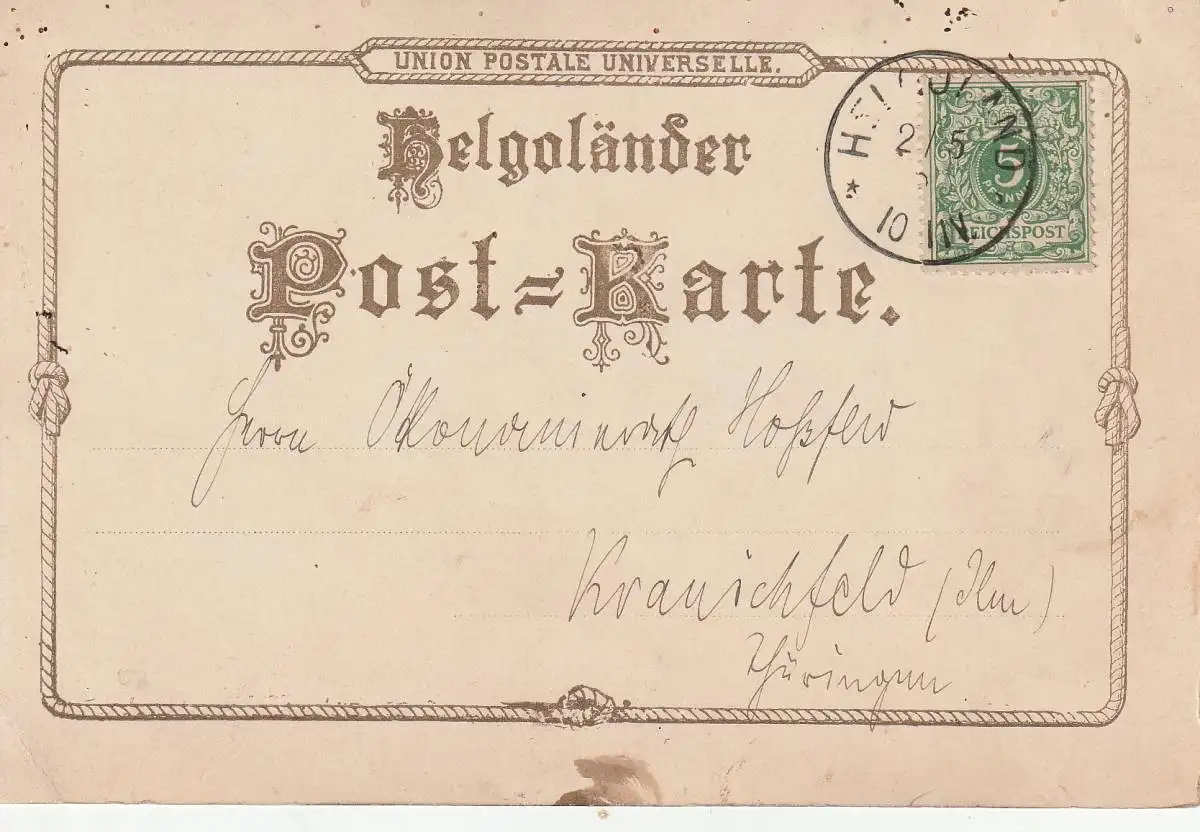 UNION POSTALE UNIVERSELLE.
Helgoländer
Post=Karte.
HELGOLAND
2/5
10 11N
5
PFENNIG
REICHSPOST
Herrn Ökonomierath Hoßfeld
Kranichfeld (Ilm)
Thüringen